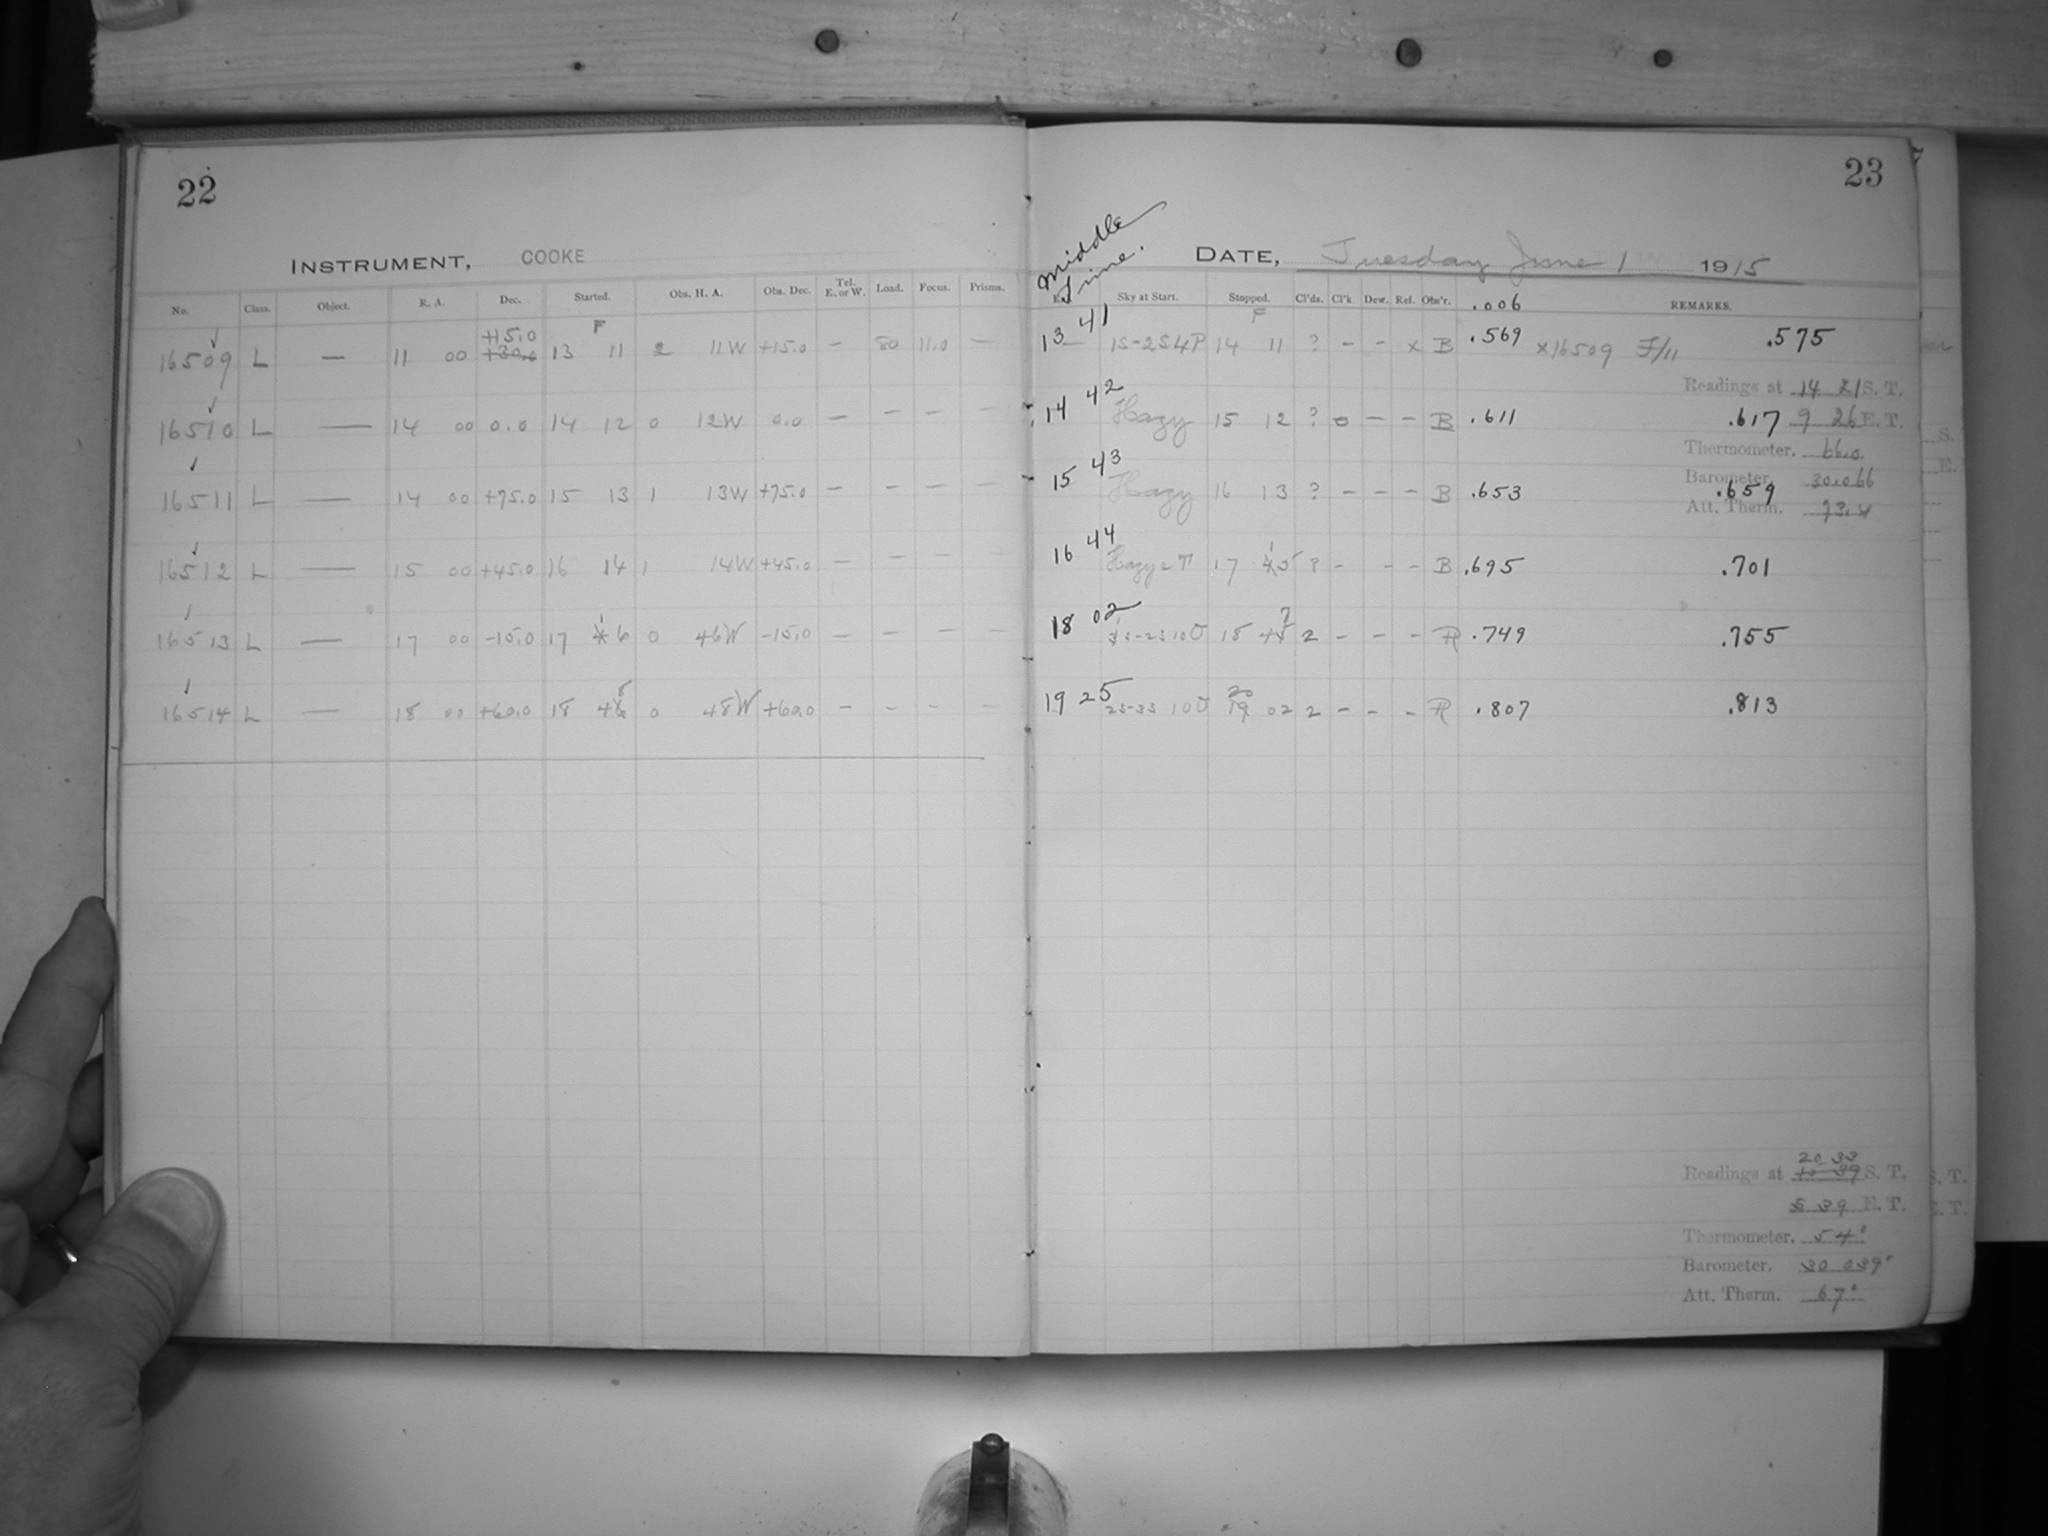 22
INSTRUMENT, COOKE
No. Class. Object. R. A. Dec. Started. Obs. H. A. Obs. Dec. Tel. E. or W. Load. Focus. Prisms.
+15.0 F
16509 L — 11 00 +30.0 13 11 2 11W +15.0 — 80 11.0 —
16510 L — 14 00 0.0 14 12 0 12W 0.0 — — — —
16511 L — 14 00 +75.0 15 13 1 13W +75.0 — — — —
16512 L — 15 00 +45.0 16 14 1 14W +45.0 — — — —
16513 L — 17 00 -15.0 17 16 0 46W -15.0 — — — —
16514 L — 18 00 +60.0 18 48 0 48W +60.0 — - - —
23
Middle Time.
DATE, Tuesday June 1 1915
Sky at Start. Stopped. Cl'ds. Cl'k. Dew. Ref. Obs'r. .006 REMARKS.
F
13 41 1S-2S4P 14 11 ? - - x B .569 x16509 F/11 .575
Readings at 14 21 S. T.
14 42 Hazy 15 12 ? o — - B .611 .617 9 26 E. T.
Thermometer. 66.0
Barometer. 30.066
15 43 Hazy 16 13 ? - — - B .653 .659
Att. Therm. 73.4
16 44 Hazy 17 15 ? - - - B .695 .701
18 02 18 47 2 - - - R .749 .755
20
19 25 2S-3S 10U 19 02 2 - - - R .807 .813
20 33
Readings at S. T.
39 E. T.
Thermometer. 54°
Barometer. 30 039
Att. Therm. 67°
S.
E.
S. T.
E. T.